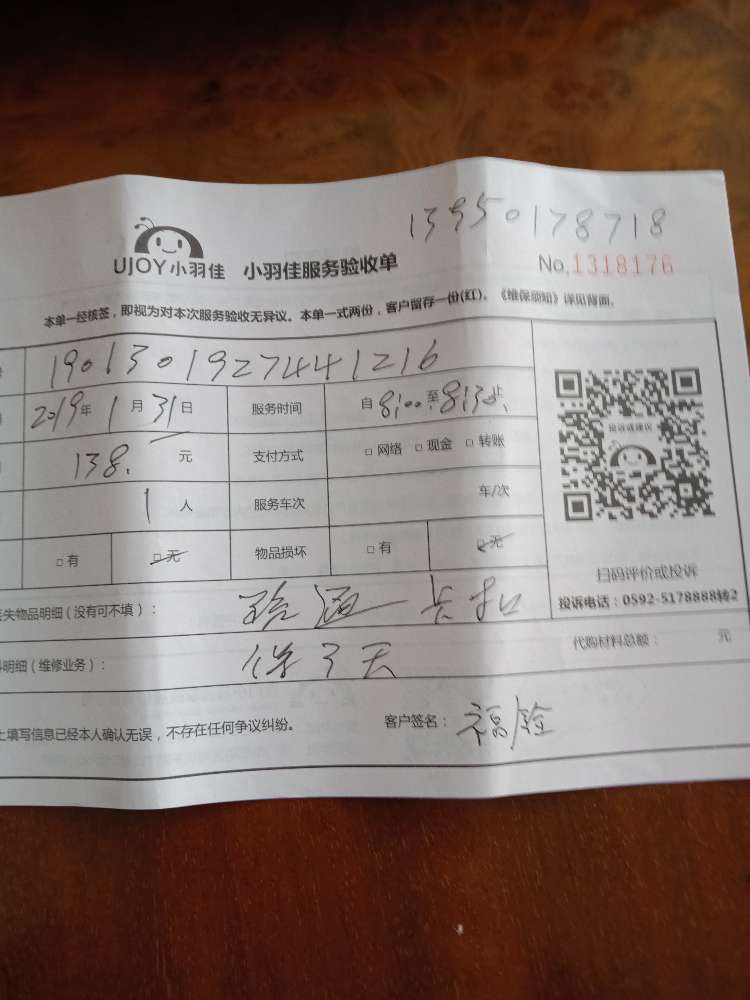 13950178718
UJOY小羽佳 小羽佳服务验收单
No.1318176
本单一经核签，即视为对本次服务验收无异议。本单一式两份，客户留存一份(红)。《维保须知》详见背面。
1901301927441216
2019年1月31日 服务时间 自8:00至8:30止
138. 元 支付方式 □网络 □现金 □转账
1人 服务车次 车/次
□有 □无 物品损坏 □有 □无
投诉或建议
扫码评价或投诉
投诉电话：0592-5178888转2
失物品明细（没有可不填）：
明细（维修业务）： 代购材料总额： 元
填写信息已经本人确认无误，不存在任何争议纠纷。 客户签名：